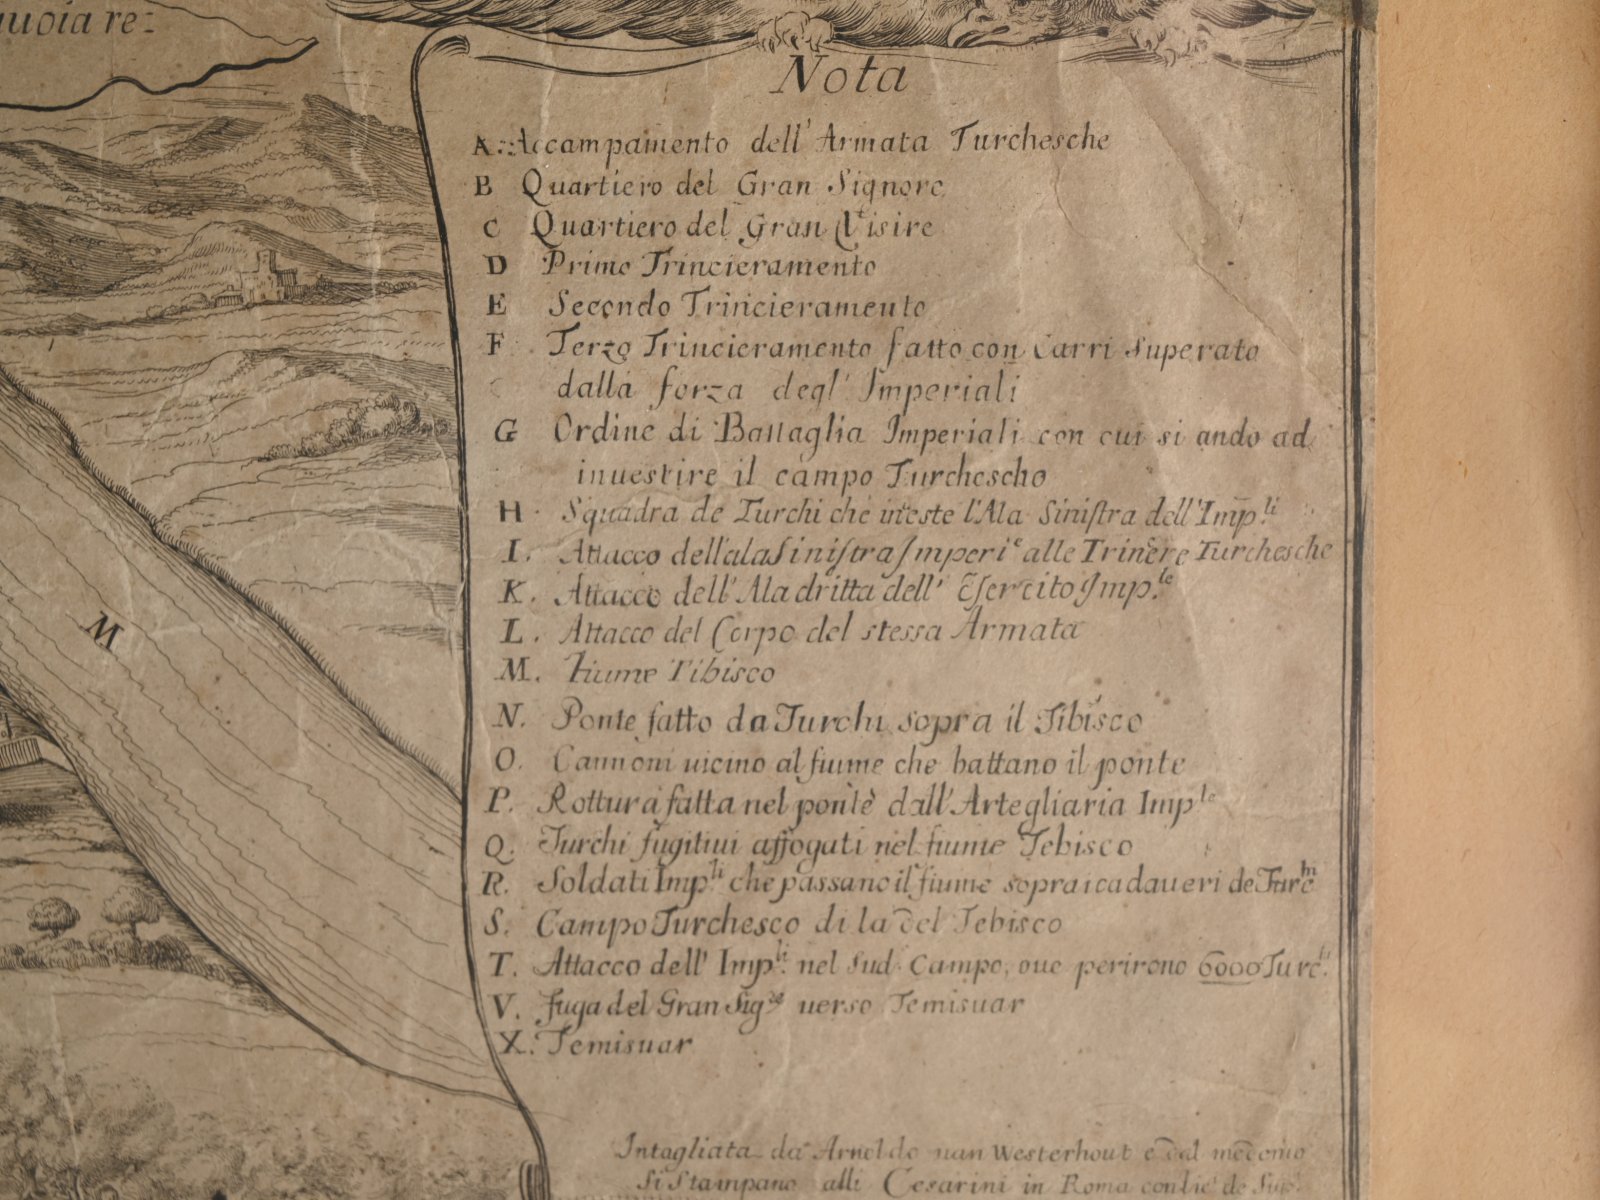 uoia re-
Nota
A. Accampamento dell' Armata Turchesche
B Quartiero del Gran Signore
C Quartiero del Gran Visire
D Primo Trincieramento
E Secondo Trincieramento
F Terzo Trincieramento fatto con Carri Superato
dalla forza degl' Imperiali
G Ordine di Battaglia Imperiali con cui si ando ad
inuestire il campo Turchescho
H Squadra de Turchi che iueste l'Ala Sinistra dell' Imp.li
I. Attacco dell'ala Sinistra Imperi.e alle Trinere Turchesche
K. Attacco dell' Ala dritta dell' Esercito Imp.le
L. Attacco del Corpo del stessa Armata
M. Fiume Tibisco
M
N. Ponte fatto da Turchi sopra il Tibisco
O. Cannoni uicino al fiume che battano il ponte
P. Rottura fatta nel ponte dall' Artegliaria Imp.le
Q. Turchi fugitiui affogati nel fiume Tebisco
R. Soldati Imp.li che passano il fiume sopra i cadaueri de Turc.hi
S. Campo Turchesco di la del Tebisco
T. Attacco dell' Imp.li nel Sud. Campo, oue perirono 6000 Turc.li
V. Fuga del Gran Sig.re uerso Temisuar
X. Temisuar
Intagliata da Arnoldo uan Westerhout e dal medemo
Si Stampano alli Cesarini in Roma con lic. de Sup.